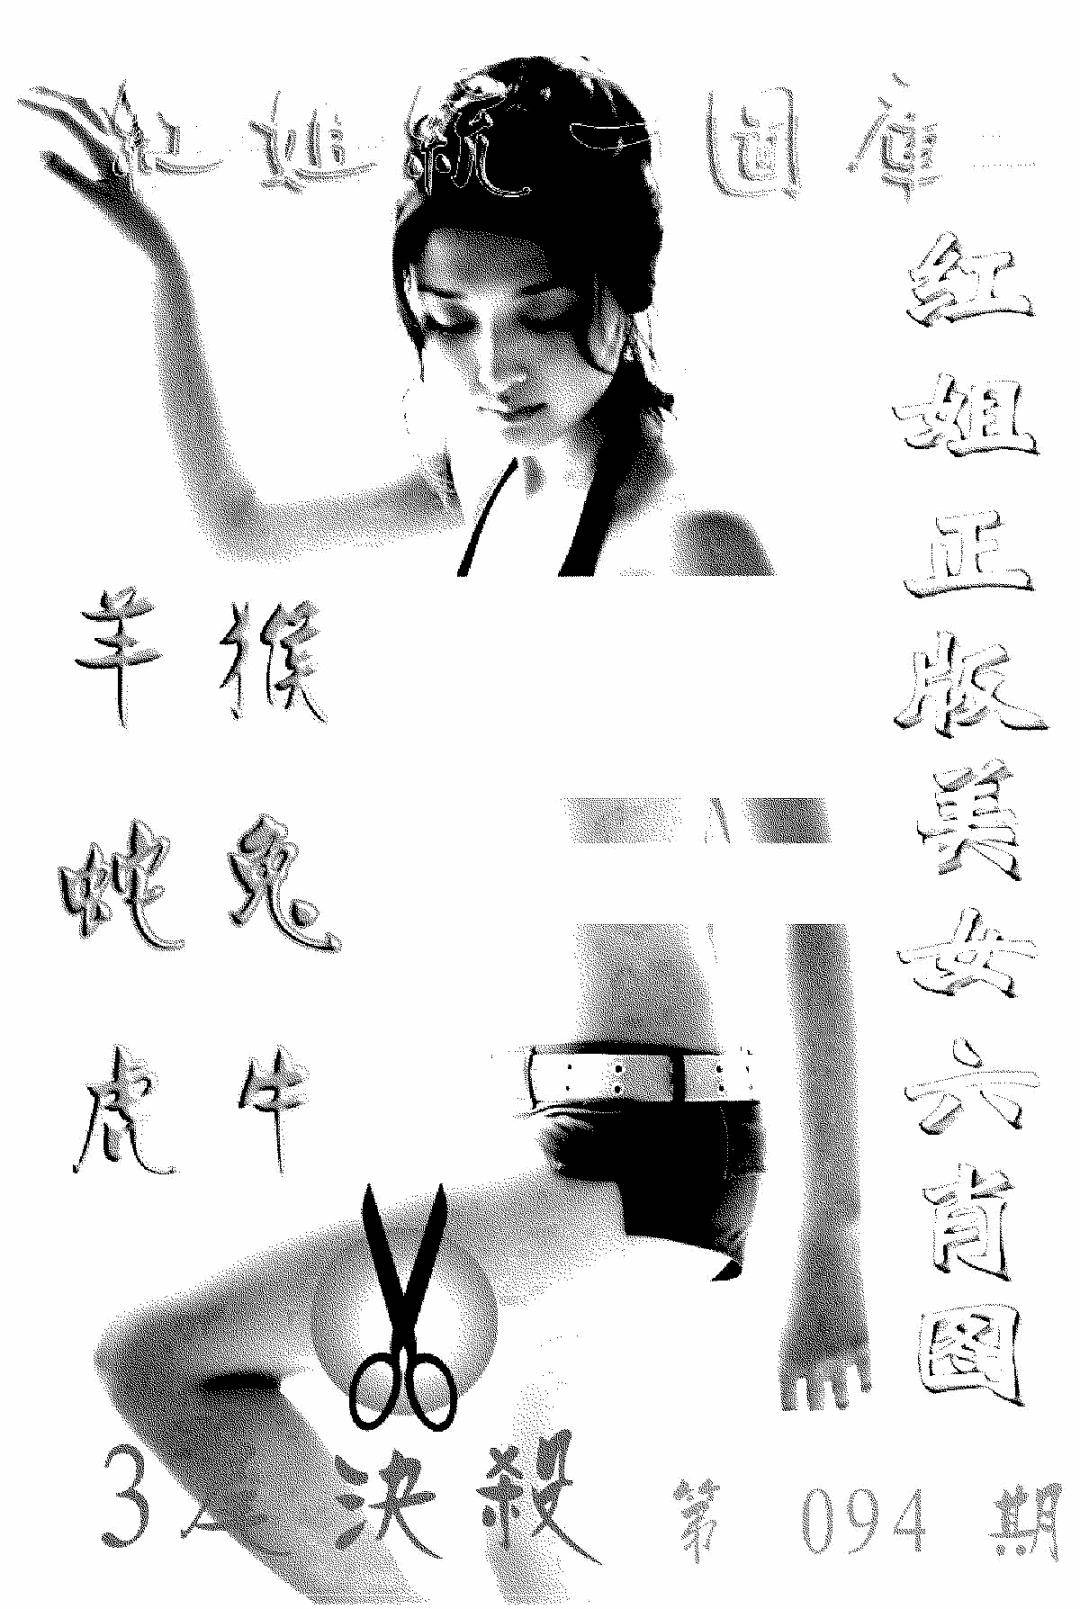 紅姐統一圖庫
紅姐正版美女六肖图
羊 猴
蛇 兔
虎 牛
3 決殺
第 094 期